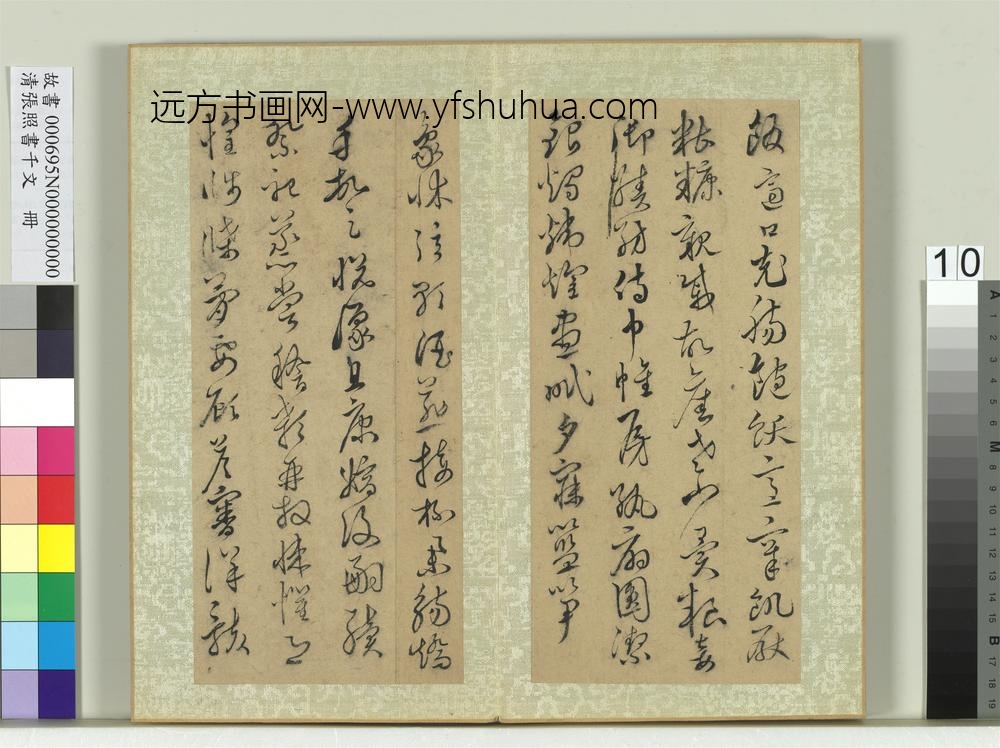 远方书画网-www.yfshuhua.com
飯適口充腸飽飫烹宰飢厭
糟糠親戚故舊老少異糧妾
御績紡侍巾帷房紈扇圓潔
銀燭煒煌晝眠夕寐籃筍
象床弦歌酒讌接杯舉觴矯
手頓足悅豫且康嫡後嗣續
祭祀蒸嘗稽顙再拜悚懼恐
惶牋牒簡要顧答審詳骸
故書 000695N000000000
清張照書千文 冊
10
A 1 2 3 4 5 6 M 8 9 10 11 12 13 14 15 B 17 18 19